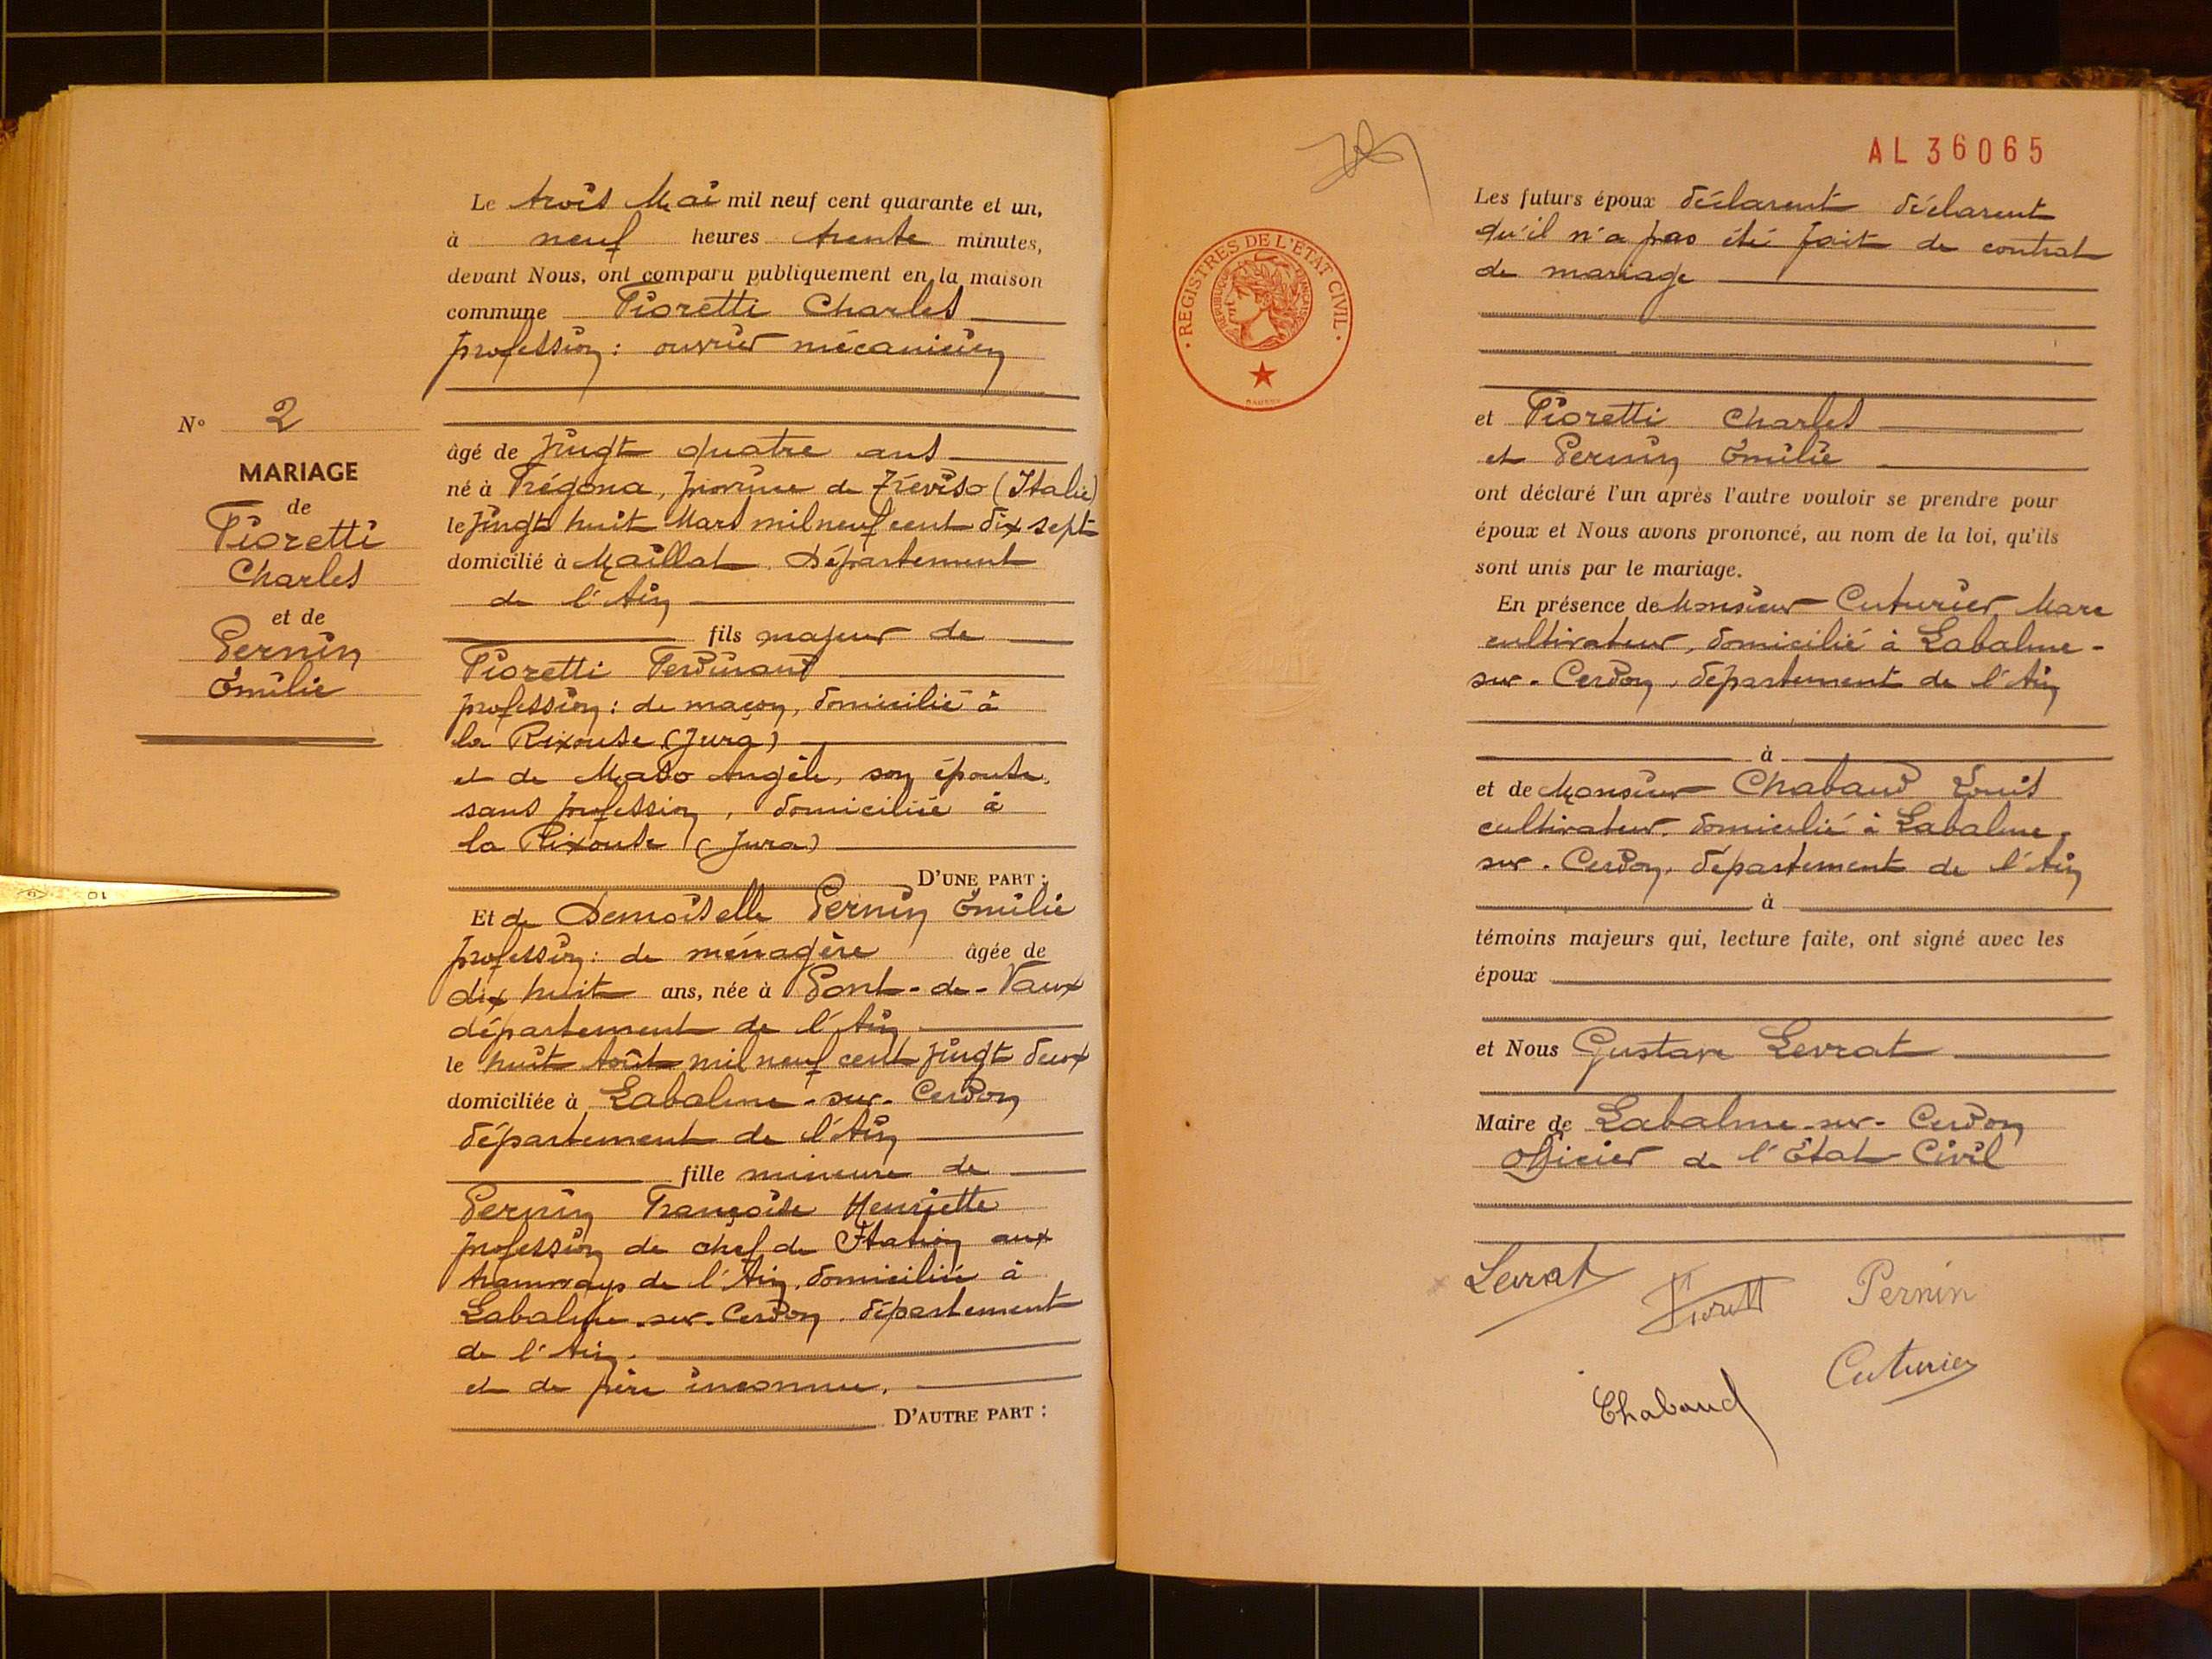 N° 2
MARIAGE
de
Fioretti
Charles
et de
Pernin
Émilie
Le trois Mai mil neuf cent quarante et un,
à neuf heures trente minutes,
devant Nous, ont comparu publiquement en la maison
commune Fioretti Charles
profession : ouvrier mécanicien
âgé de vingt quatre ans
né à Frégona, province de Tréviso (Italie)
le vingt huit Mars mil neuf cent dix sept
domicilié à Maillat. Département
de l'Ain
fils majeur de
Fioretti Ferdinand
profession : de maçon, domicilié à
la Rixouse (Jura)
et de Maso Angèle, son épouse,
sans profession, domiciliée à
la Rixouse (Jura)
D'UNE PART :
Et de Demoiselle Pernin Émilie
profession : de ménagère âgée de
dix huit ans, née à Pont-de-Vaux
département de l'Ain
le huit Août mil neuf cent vingt deux
domiciliée à Labalme-sur-Cerdon
département de l'Ain
fille mineure de
Pernin Françoise Henriette
profession de chef de Station aux
tramways de l'Ain, domiciliée à
Labalme-sur-Cerdon, département
de l'Ain.
et de père inconnu.
D'AUTRE PART :
AL 36065
REGISTRES DE L'ETAT CIVIL
REPUBLIQUE FRANÇAISE
Les futurs époux déclarent déclarent
qu'il n'a pas été fait de contrat
de mariage
et Fioretti Charles
et Pernin Émilie
ont déclaré l'un après l'autre vouloir se prendre pour
époux et Nous avons prononcé, au nom de la loi, qu'ils
sont unis par le mariage.
En présence de Monsieur Cuturier Marc
cultivateur, domicilié à Labalme-
sur-Cerdon, département de l'Ain
à
et de Monsieur Chabaud Louis
cultivateur, domicilié à Labalme-
sur-Cerdon, département de l'Ain
à
témoins majeurs qui, lecture faite, ont signé avec les
époux
et Nous Gustave Levrat
Maire de Labalme-sur-Cerdon
Officier de l'État Civil
Levrat
Fiorett
Pernin
Cuturier
Chabaud